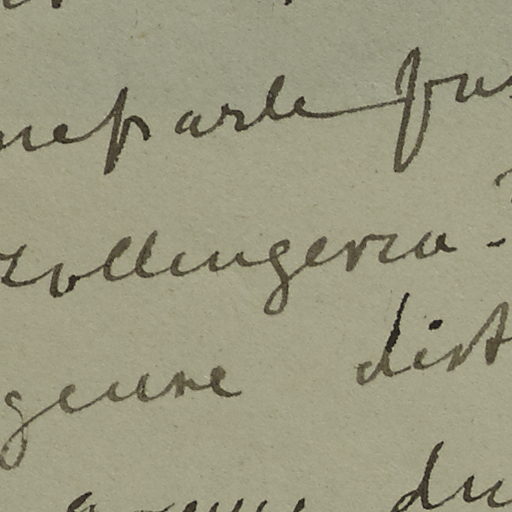 ne parle pas
Zollingeria
genre dist
du